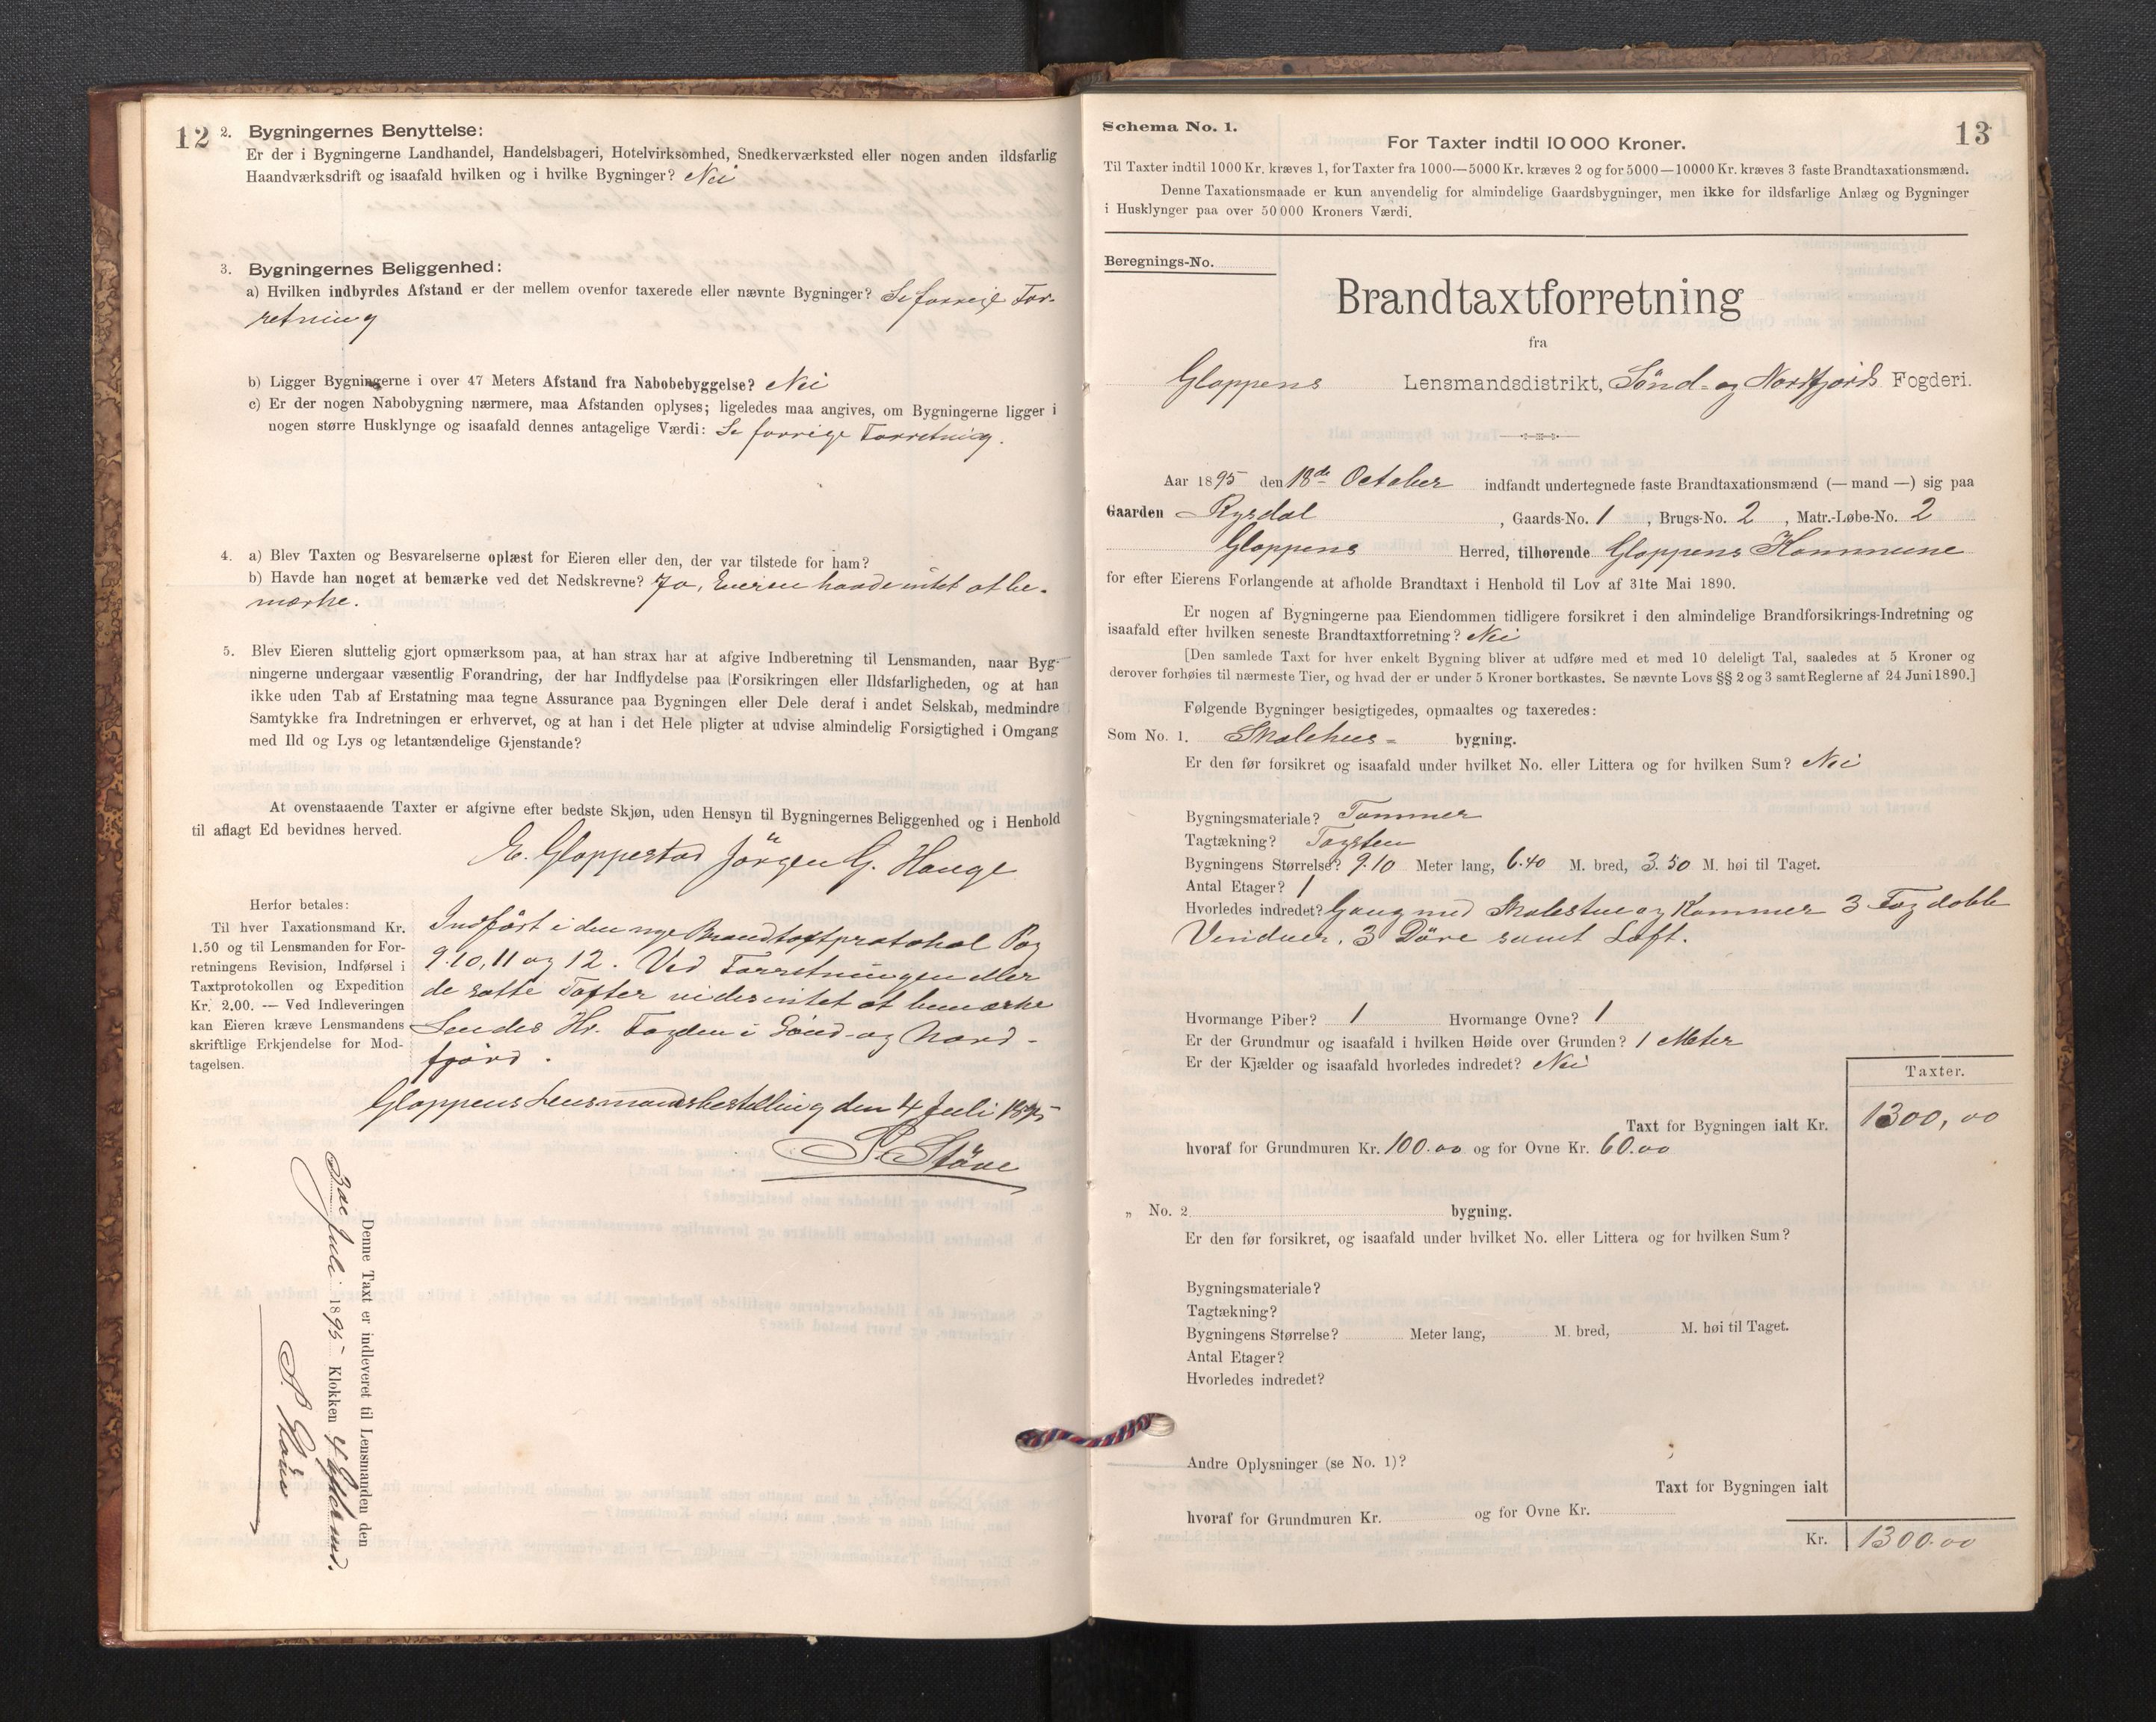 12
2. Bygningernes Benyttelse:
Er der i Bygningerne Landhandel, Handelsbageri, Hotelvirksomhed, Snedkerværksted eller nogen anden ildsfarlig
Haandværksdrift og isaafald hvilken og i hvilke Bygninger? Nei
3. Bygningernes Beliggenhed:
a) Hvilken indbyrdes Afstand er der mellem ovenfor taxerede eller nævnte Bygninger? Se forrige For-
retning
b) Ligger Bygningerne i over 47 Meters Afstand fra Nabobebyggelse? Nei
c) Er der nogen Nabobygning nærmere, maa Afstanden oplyses; ligeledes maa angives, om Bygningerne ligger i
nogen større Husklynge og isaafald dennes antagelige Værdi: Se forrige Forretning.
4. a) Blev Taxten og Besvarelserne oplæst for Eieren eller den, der var tilstede for ham?
b) Havde han noget at bemærke ved det Nedskrevne? Ja, Eieren havde intet at be-
mærke.
5. Blev Eieren sluttelig gjort opmærksom paa, at han strax har at afgive Indberetning til Lensmanden, naar Byg-
ningerne undergaar væsentlig Forandring, der har Indflydelse paa Forsikringen eller Ildsfarligheden, og at han
ikke uden Tab af Erstatning maa tegne Assurance paa Bygningen eller Dele deraf i andet Selskab, medmindre
Samtykke fra Indretningen er erhvervet, og at han i det Hele pligter at udvise almindelig Forsigtighed i Omgang
med Ild og Lys og letantændelige Gjenstande?
At ovenstaaende Taxter er afgivne efter bedste Skjøn, uden Hensyn til Bygningernes Beliggenhed og i Henhold
til aflagt Ed bevidnes herved.
E. Gloppestad Jörgen G. Hauge
Herfor betales:
Til hver Taxationsmand Kr.
1.50 og til Lensmanden for For-
retningens Revision, Indførsel i
Taxtprotokollen og Expedition
Kr. 2.00. — Ved Indleveringen
kan Eieren kræve Lensmandens
skriftlige Erkjendelse for Mod-
tagelsen.
Indført i den nye Brandtaxtprotokol Pag
9. 10, 11 og 12. Ved Forretningen eller
de satte Taxter vides intet at bemærke
Sendes Hr. Fogden i Sönd- og Nord-
fjord.
Gloppens Lensmandsbestilling den 4 Juli 1895
P. Støve
Denne Taxt er indleveret til Lensmanden den
3die Juli 1895 Klokken 4 Efterm.
P. Støve
13
Schema No. 1.
For Taxter indtil 10 000 Kroner.
Til Taxter indtil 1000 Kr. kræves 1, for Taxter fra 1000—5000 Kr. kræves 2 og for 5000—10000 Kr. kræves 3 faste Brandtaxationsmænd.
Denne Taxationsmaade er kun anvendelig for almindelige Gaardsbygninger, men ikke for ildsfarlige Anlæg og Bygninger
i Husklynger paa over 50 000 Kroners Værdi.
Beregnings-No.
Brandtaxtforretning
fra
Gloppens Lensmandsdistrikt, Sönd- og Nordfjords Fogderi.
Aar 1895 den 18de October indfandt undertegnede faste Brandtaxationsmænd (— mand —) sig paa
Gaarden Rysdal, Gaards-No. 1, Brugs-No. 2, Matr.-Løbe-No. 2
Gloppens Herred, tilhørende Gloppens Kommune
for efter Eierens Forlangende at afholde Brandtaxt i Henhold til Lov af 31te Mai 1890.
Er nogen af Bygningerne paa Eiendommen tidligere forsikret i den almindelige Brandforsikrings-Indretning og
isaafald efter hvilken seneste Brandtaxtforretning? Nei
[Den samlede Taxt for hver enkelt Bygning bliver at udføre med et med 10 deleligt Tal, saaledes at 5 Kroner og
derover forhøies til nærmeste Tier, og hvad der er under 5 Kroner bortkastes. Se nævnte Lovs §§ 2 og 3 samt Reglerne af 24 Juni 1890.]
Følgende Bygninger besigtigedes, opmaaltes og taxeredes:
Som No. 1. Skolehus- bygning.
Er den før forsikret og isaafald under hvilket No. eller Littera og for hvilken Sum? Nei
Bygningsmateriale? Tømmer
Tagtækning? Tagsten
Bygningens Størrelse? 9.10 Meter lang, 6.40 M. bred, 3.50 M. høi til Taget.
Antal Etager? 1
Hvorledes indredet? Gang med Skolestue og Kammer 3 Fag doble
Vinduer, 3 Döre samt Loft.
Hvormange Piber? 1 Hvormange Ovne? 1
Er der Grundmur og isaafald i hvilken Høide over Grunden? 1 Meter
Er der Kjælder og isaafald hvorledes indredet? Nei
Taxter.
Taxt for Bygningen ialt Kr. 1300,00
hvoraf for Grundmuren Kr. 100.00 og for Ovne Kr. 60.00
„ No. 2 bygning.
Er den før forsikret, og isaafald under hvilket No. eller Littera og for hvilken Sum?
Bygningsmateriale?
Tagtækning?
Bygningens Størrelse? Meter lang, M. bred, M. høi til Taget.
Antal Etager?
Hvorledes indredet?
Andre Oplysninger (se No. 1)?
Taxt for Bygningen ialt
hvoraf for Grundmuren Kr. og for Ovne Kr.
Kr. 1300.00